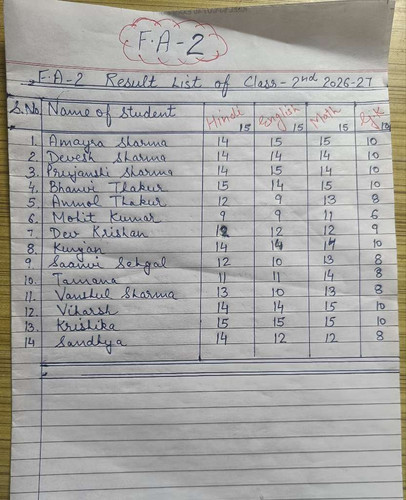 F.A-2
F.A-2 Result List of Class-2nd 2026-27
S.No. Name of student Hindi 15 English 15 Math 15 10
1. Amayra Sharma 14 15 15 10
2. Devesh Sharma 14 14 14 10
3. Priyanshi Sharma 14 15 14 10
4. Bhanvi Thakur 15 14 15 10
5. Anmol Thakur 12 9 13 8
6. Mohit Kumar 9 9 11 6
7. Dev Krishan 12 12 12 9
8. 14 14 14 10
9. Saanvi Sehgal 12 10 13 8
10. Tamana 11 11 14 8
11. Vanshul Sharma 13 10 13 8
12. Viharsh 14 14 15 10
13. Krishika 15 15 15 10
14 Sandhya 14 12 12 8